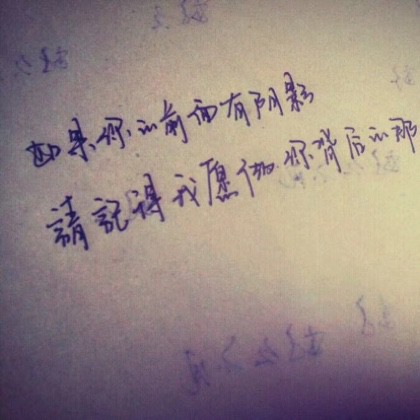 如果你的前面有阴影
請記得我愿做你背后的那